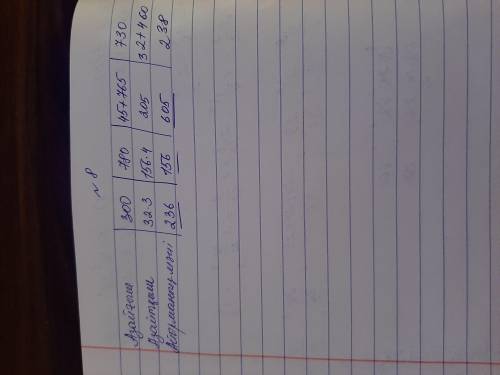 № 8
Азайғыш 300 780 45+765 730
Азайтқыш 32·3 156·4 205 32+460
Айырманың мәні 236 156 605 238